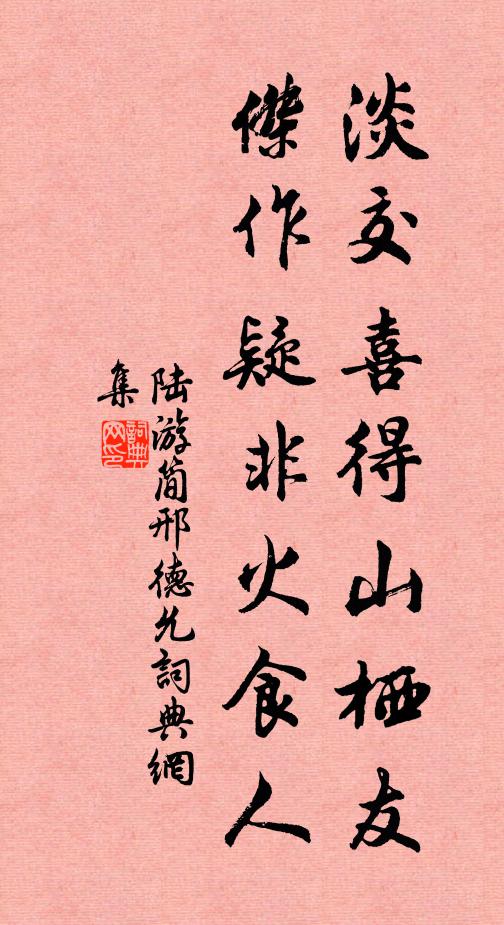 淡交喜得山栖友
傑作疑非火食人
陆游简邢德允詞典網
集
詞典网印